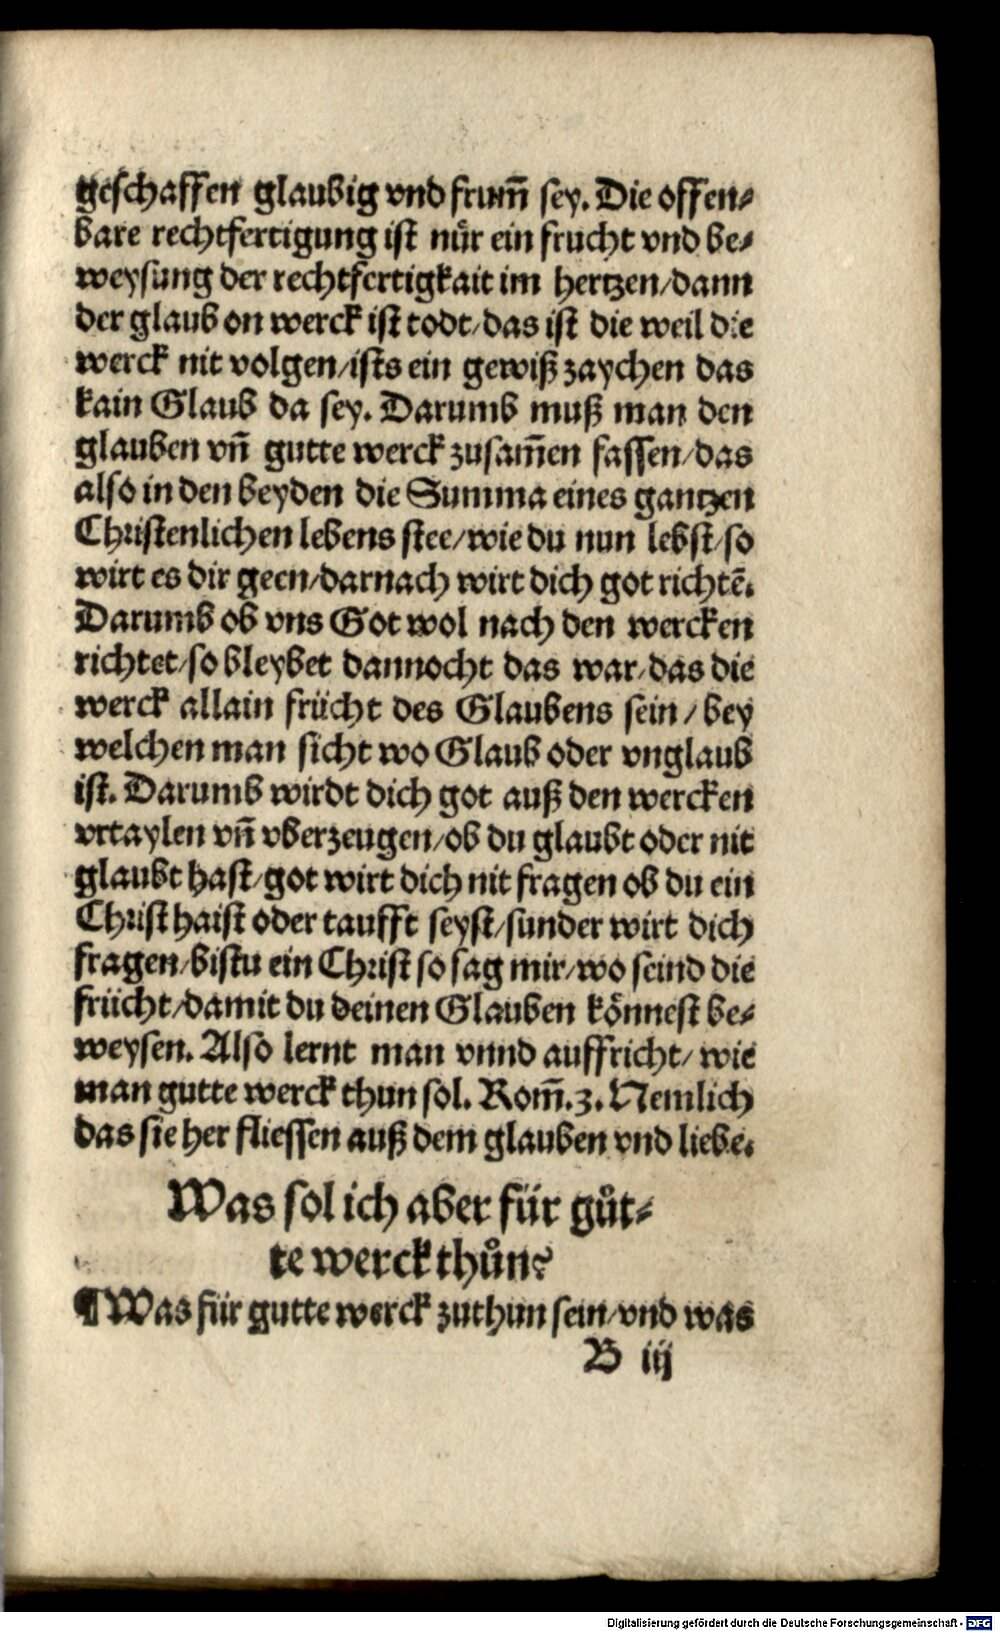 geschaffen glaubig vnd frum̃ sey. Die offen⸗
bare rechtfertigung ist nůr ein frucht vnd be⸗
weysung der rechtfertigkait im hertzen/dann
der glaub on werck ist todt/das ist die weil die
werck nit volgen/ists ein gewiß zaychen das
kain Glaub da sey. Darumb muß man den
glauben vñ gutte werck zusam̃en fassen/das
also in den beyden die Summa eines gantzen
Christenlichen lebens stee/wie du nun lebst/so
wirt es dir geen/darnach wirt dich got richtẽ.
Darumb ob vns Got wol nach den wercken
richtet/so bleybet dannocht das war/das die
werck allain frücht des Glaubens sein/bey
welchen man sicht wo Glaub oder vnglaub
ist. Darumb wirdt dich got auß den wercken
vrtaylen vñ vberzeugen/ob du glaubt oder nit
glaubt hast/got wirt dich nit fragen ob du ein
Christ haist oder taufft seyst/sunder wirt dich
fragen/bistu ein Christ so sag mir/wo seind die
frücht/damit du deinen Glauben könnest be⸗
weysen. Also lernt man vnnd auffricht/wie
man gutte werck thun sol. Rom̃.3. Nemlich
das sie her fliessen auß dem glauben vnd liebe.
Was sol ich aber für gůt⸗
te werck thůn?
¶ Was für gutte werck zuthun sein/vnd was
B iij
Digitalisierung gefördert durch die Deutsche Forschungsgemeinschaft - DFG